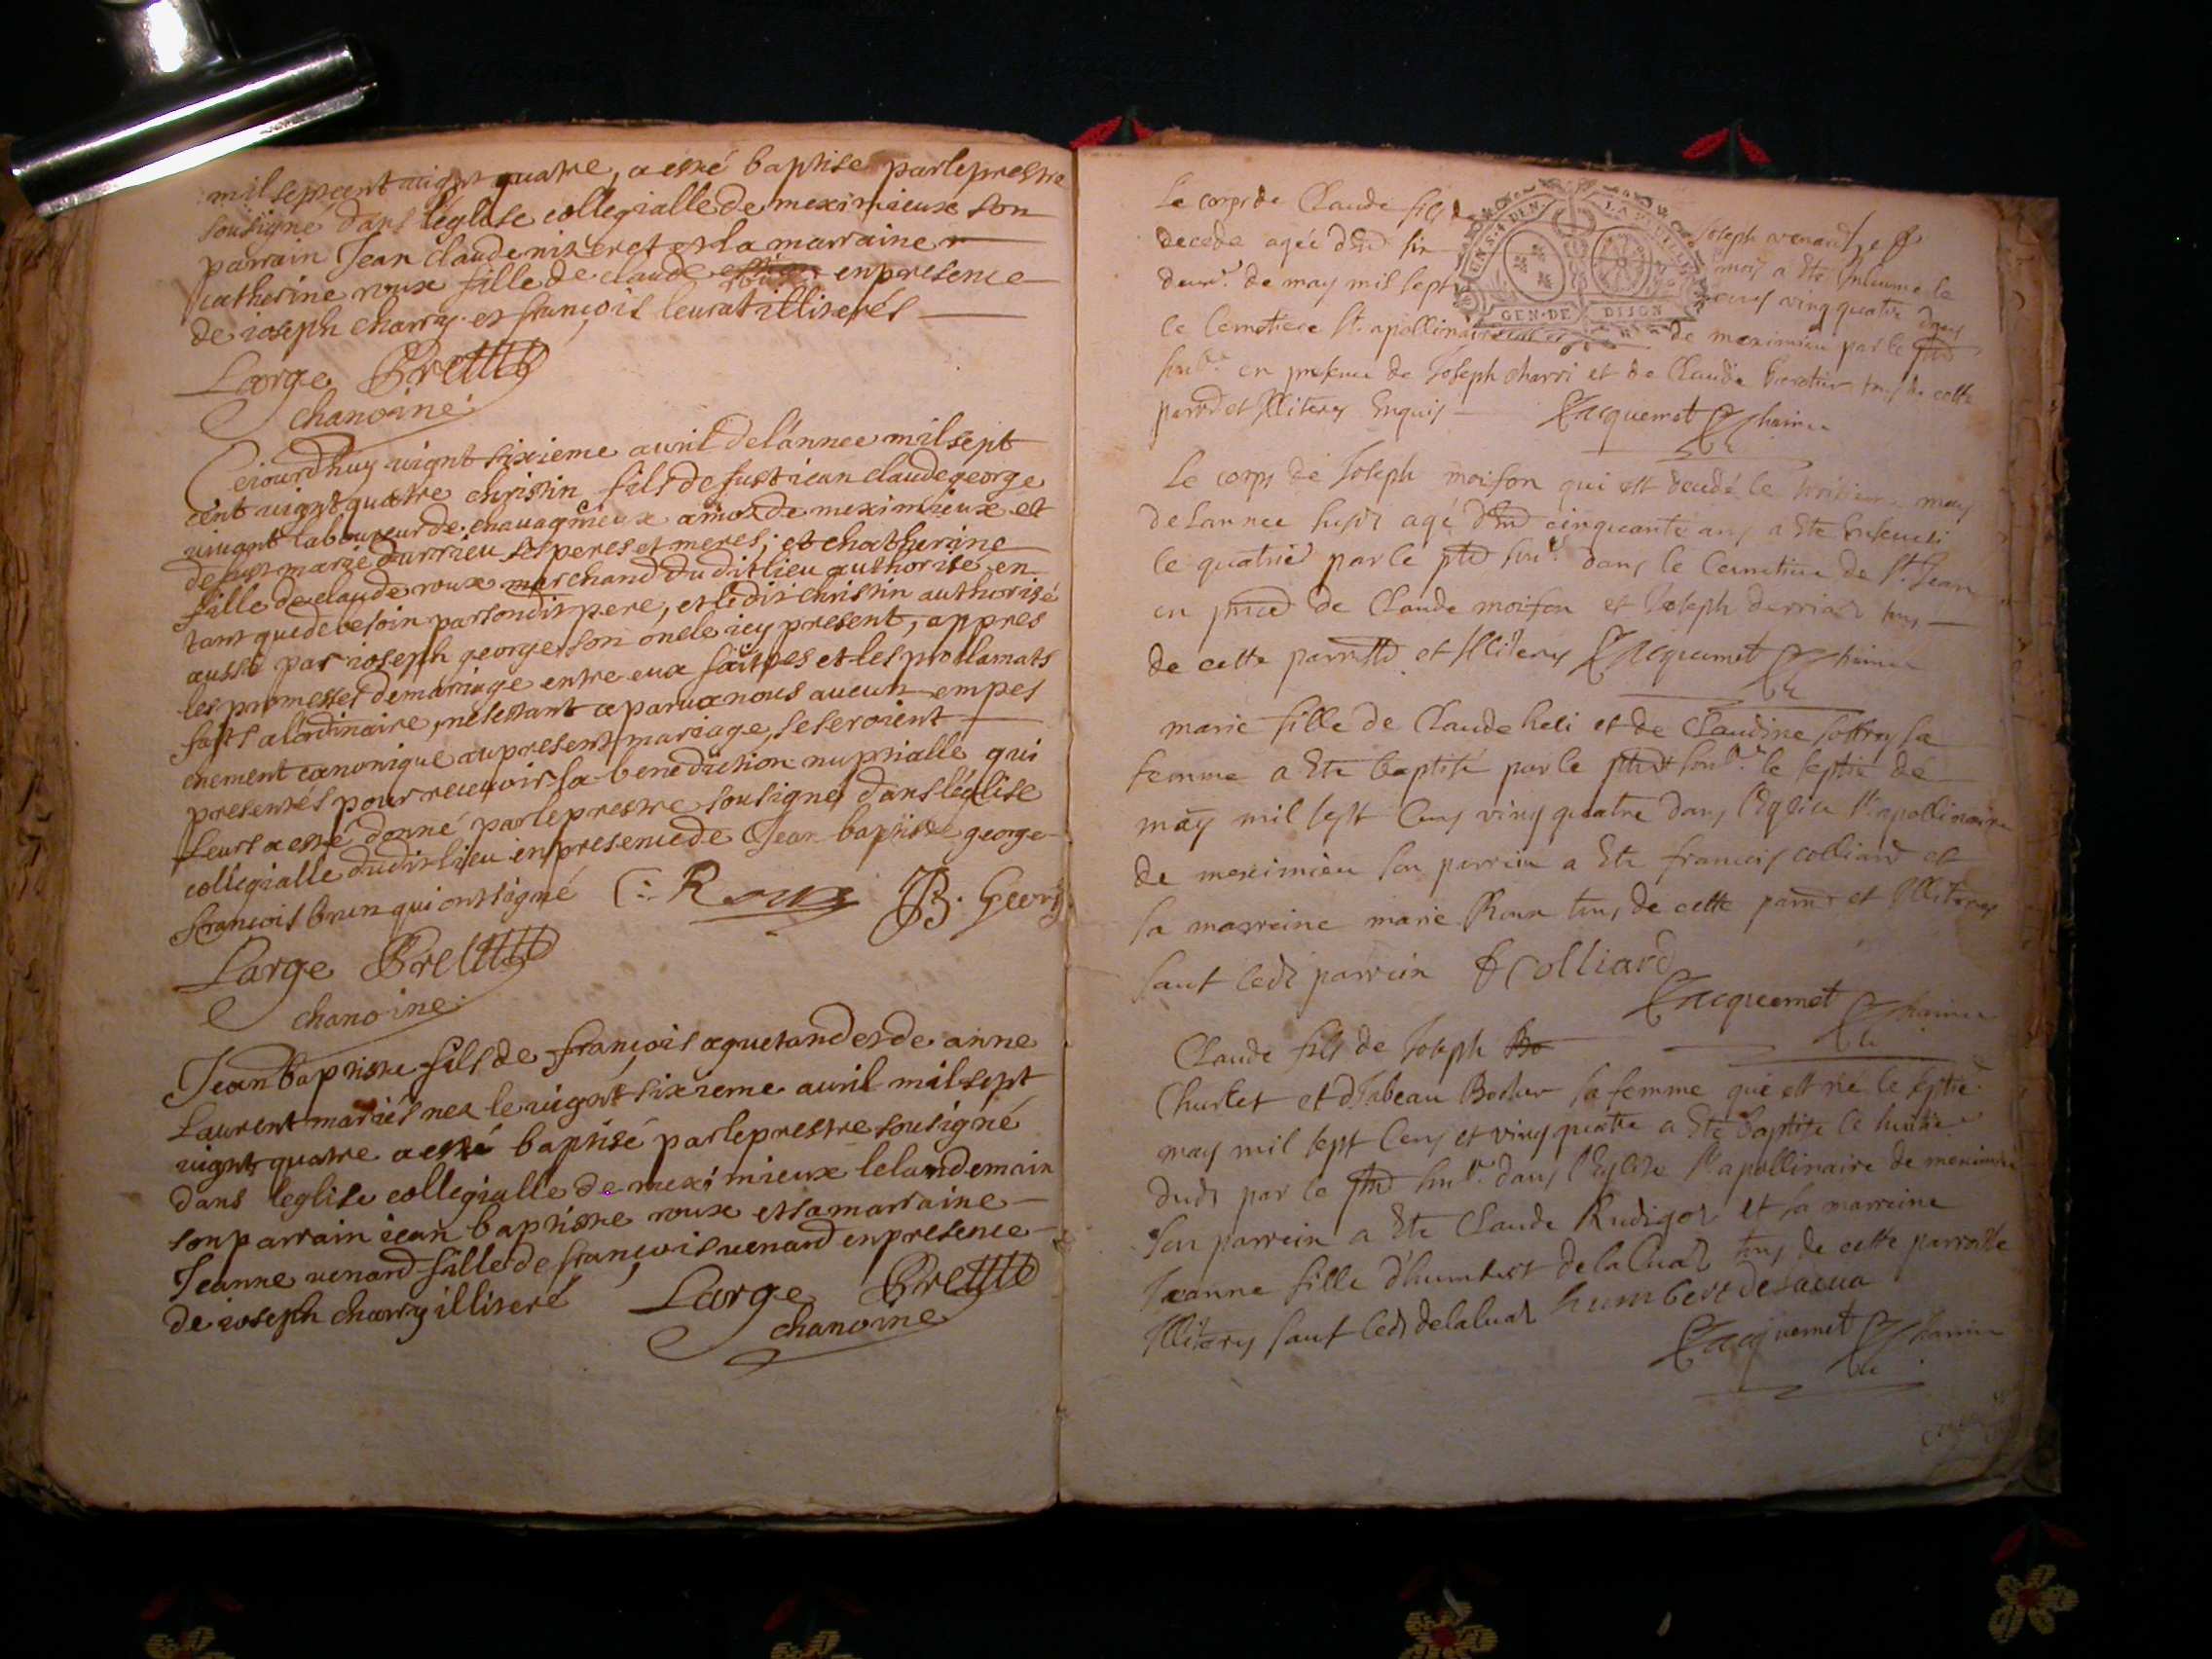 mil sept cent vignt quatre, a esté baptise par le prestre
sousigné dans l'église collegialle de meximieux son
parrain Jean claude nizeret et la marraine
catherine roux fille de claude en presence
de ioseph charry et françois leurat illiterés
Large Pretre
chanoine
Ceiourdhuy vignt sixieme avril de l'annee mil sept
cent vignt quatre christin fils de fust iean claude george
vivant laboureur de chavagnieux amodz de meximieux et
de fust marie durrieu ses peres et meres; et chatherine
fille de claude roux marchand du dit lieu authorisé en
tant que de besoin par son dit pere, et le dit christin authorisé
aussi par ioseph george son oncle icy present, appres
les promesses de mariage entre eux faittes et les proclamats
faits a lordinaire, ne sestant aparu a nous aucun empes
chement canonique au present mariage, se seroient
presentés pour recevoir la benediction nuptialle qui
leurs a esté donné par le prestre sousigné dans l'église
collegialle du dit lieu en presence de Jean baptiste george
françois brun qui ont signé C: Roux JB. George
Large Pretre
chanoine
Jean baptiste fils de françois aguetand et de anne
Laurent mariés nez le vignt sixieme avril mil sept
vignt quatre a esté baptisé par le prestre sousigné
dans leglise collegialle de meximieux le landemain
son parrain iean baptiste roux et sa marraine
Jeanne venard fille de françois venard en presence
de ioseph charry illiteré Large Pretre
chanoine
Le corps de Claude fils de Joseph venard
decede agée d'En six mois a Ete Inhume le
deux.e de may mil sept cens ving quatre dans
le Cemetiere St. apollinaire de meximieu par le
en presence de Joseph charri et de Claude de cette
et Illiteres Enquis Jacquemet
GEN. DE DIJON
Le corps de Joseph moison qui est decedé le troisieme may
de Lannee susdt agé d'En cinquante ans a Ete Enseveli
le quatrie par le ptre sous.é dans le Cemetiere de St. Jean
en pnce de Claude moison et Joseph derriad tous
de cette parroisse et Illiteres Jacquemet
marie fille de Claude heli et de Claudine soffrey sa
femme a Ete baptisé par le ptre sous.é le septie de
may mil sept Cens ving quatre dans l'Eglise St. apollinaire
de meximieu son parrein a Ete francois colliard et
la marreine marie Roux tous de cette parr. et Illiteres
sauf ledt parrein F Colliard
Jacquemet
Claude fils de Joseph Bo
Churlet et d'Isabeau sa femme qui est né le septie
may mil sept Cens et ving quatre a Ete baptise le huitie
dudt par le ptre sous.é dans l'Eglise St. apollinaire de meximieu
Son parrein a Ete Claude Rudigoz et la marreine
Jeanne fille d'humbert delaCuaz tous de cette parroisse
Illiteres sauf ledt delaluaz humbert delacua
Jacquemet